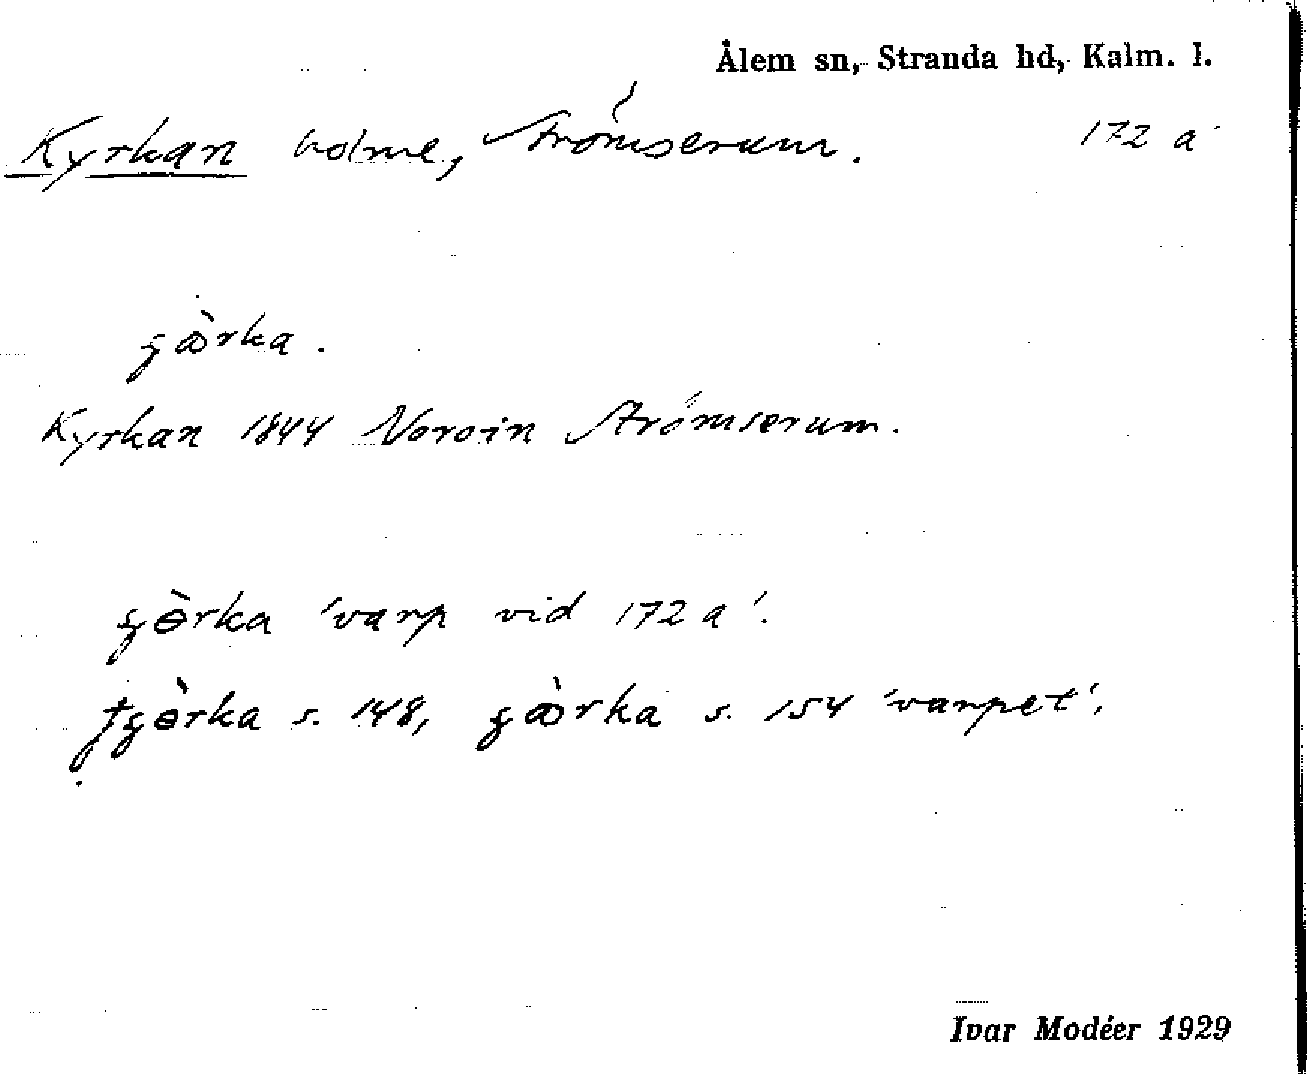 Ålem sn, Stranda hd, Kalm. l.
Kyrkan holme, Strömserum. 172 a
ɕꝏ̀rka.
Kyrkan 1844 Norvin Strömserum.
ɕɵ̀rka 'varp vid 172 a'.
†ɕɵ̀rka s. 148, ɕꝏ̀rka s. 154 'varpet'.
Ivar Modéer 1929